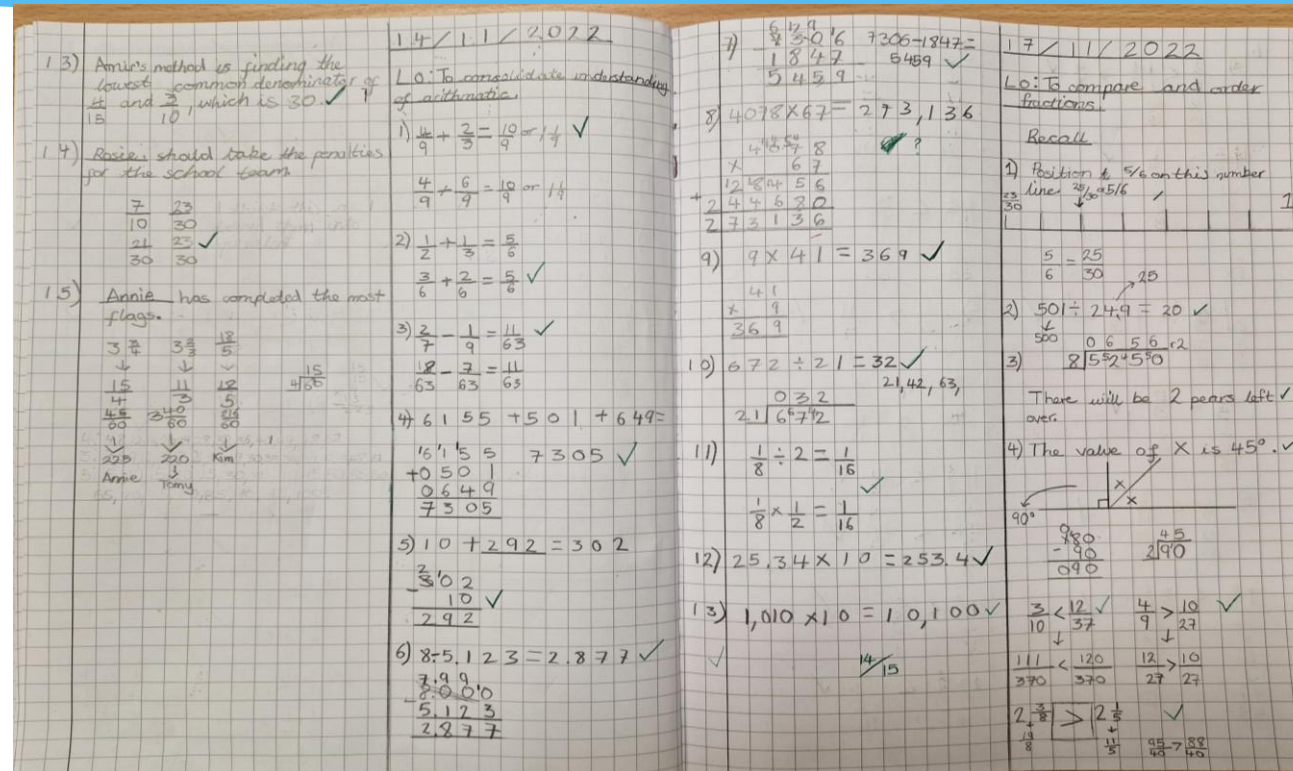 13) Amir's method is finding the
lowest common denominator of
4/15 and 3/10, which is 30. ✓
14) Rosie should take the penalties
for the school team
7/10 23/30
21/30 23/30 ✓
15) Annie has completed the most
flags.
3 3/4 3 2/3 18/5
↓ ↓ ↓
15/4 11/3 18/5
225 220
Annie Tomy Kim
14/11/2022
LO: To consolidate understanding
of arithmatic.
1) 4/9 + 2/3 = 10/9 or 1 1/9 ✓
4/9 + 6/9 = 10/9 or 1 1/9
2) 1/2 + 1/3 = 5/6
3/6 + 2/6 = 5/6 ✓
3) 2/7 - 1/9 = 11/63 ✓
18/63 - 7/63 = 11/63
4) 6155 + 501 + 649 =
6155 7305 ✓
+0501
0649
7305
5) 10 + 292 = 302
302
- 10 ✓
292
6) 8-5.123 = 2.877 ✓
7.99
8.000
- 5.123
2.877
7) 7306 7306-1847=
1847 5459 ✓
5459
8) 4078 × 67 = 273,136
4078 ?
× 67
+ 244680
273136
9) 9 × 41 = 369 ✓
41
× 9
369
10) 672 ÷ 21 = 32 ✓
21, 42, 63,
032
21 672
11) 1/8 ÷ 2 = 1/16
✓
1/8 × 1/2 = 1/16
12) 25.34 × 10 = 253.4 ✓
13) 1,010 × 10 = 10,100 ✓
✓ 14/15
17/11/2022
LO: To compare and order
fractions.
Recall
1) Position 5/6 on this number
line. 25/30 = 5/6
23/30 1
5/6 = 25/30
25
2) 501 ÷ 24.9 = 20 ✓
500
0656 r2
3) 8 5250
There will be 2 pears left ✓
over.
4) The value of x is 45°. ✓
x
x
90°
180 45
- 90 2 90
090
3/10 < 12/37 ✓ 4/9 > 10/27 ✓
↓ ↓
111/370 < 120/370 12/27 > 10/27
2 3/8 > 2 1/5 ✓
19/8 11/5 95/40 > 88/40